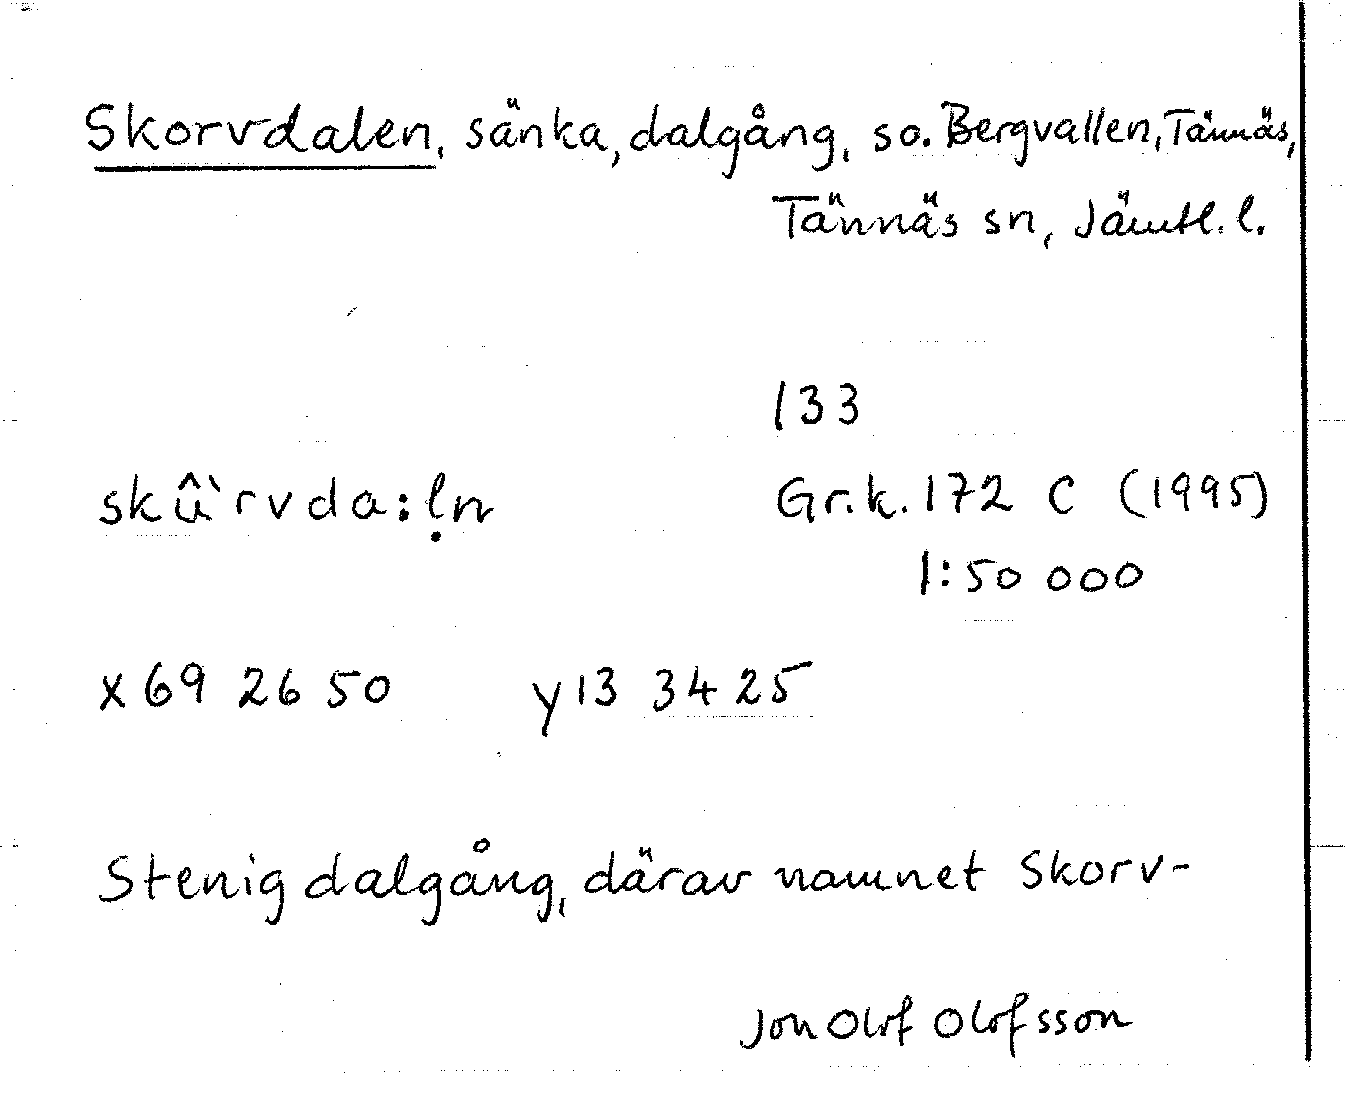 Skorvdalen, sänka, dalgång, so. Bergvallen, Tännäs,
Tännäs sn, Jämtl. l.
133
skû̀rvda:ḷn Gr.k. 172 C (1995)
1:50 000
x 69 26 50 y 13 34 25
Stenig dalgång, därav namnet Skorv-
Jon Olof Olofsson